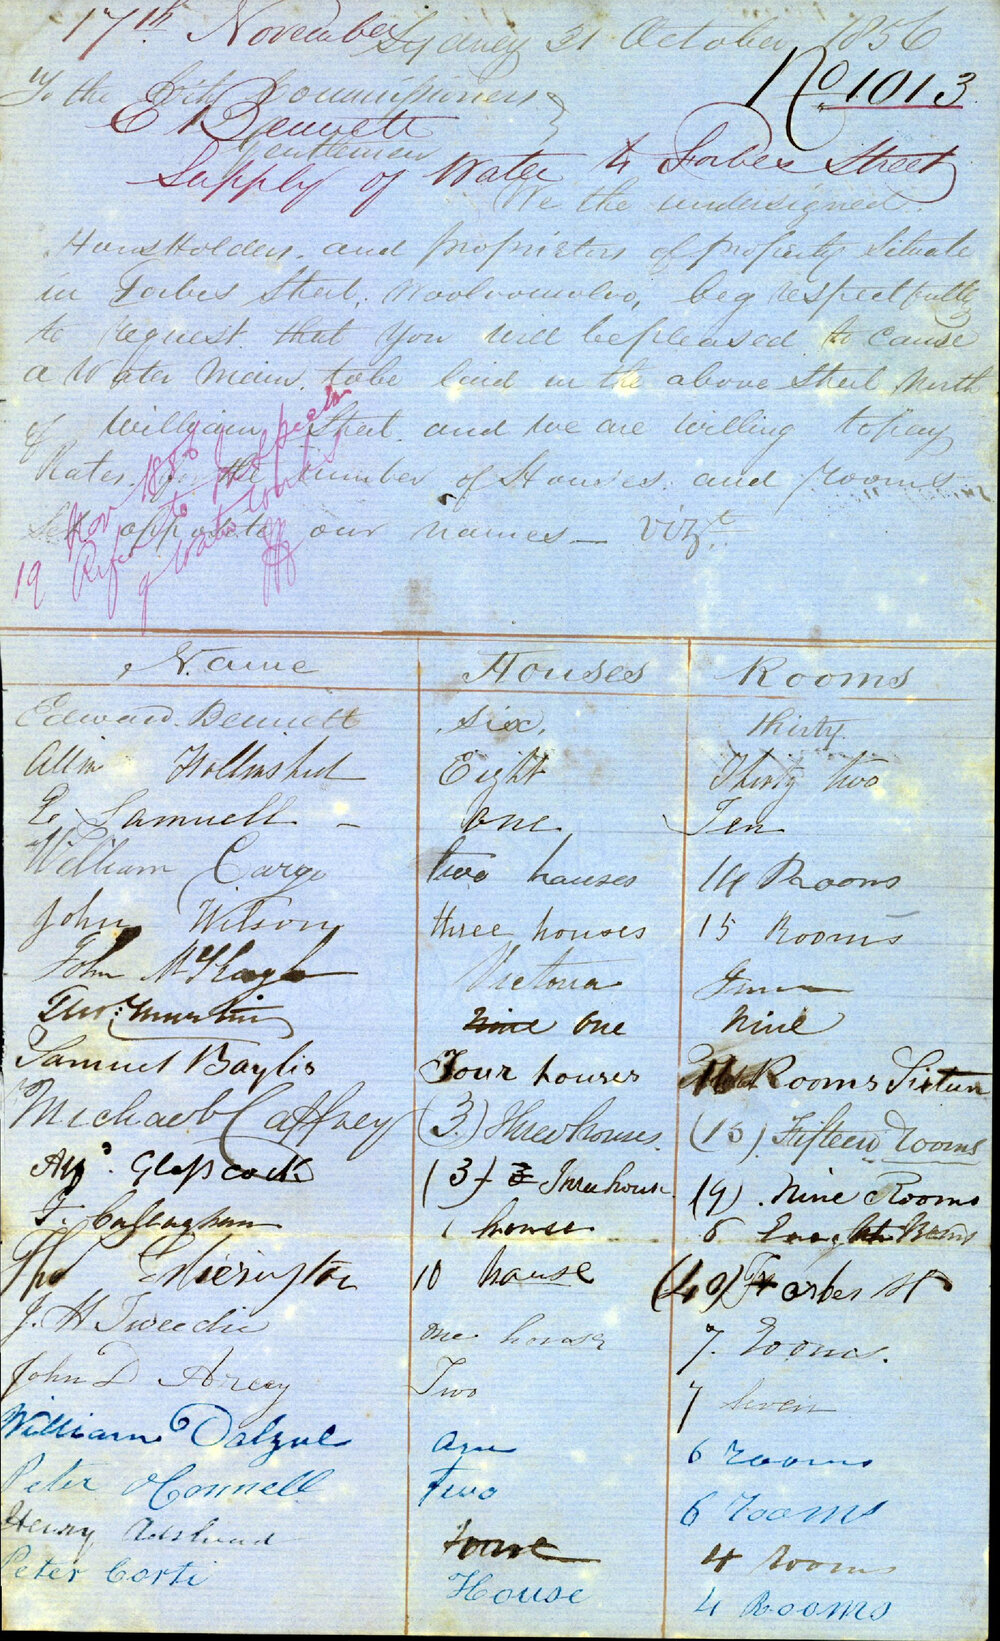 17th November
Sydney 31 October 1856
No. 1013
To the City Commissioners
E Bennett
Gentlemen
Supply of Water to Forbes Street
We the undersigned
HousHolders. and proprietors of property Situate
in Forbes Street, Woolloomooloo, beg respectfully
to request that you will be pleased to cause
a Water Main. tobe laid in the above Street North
of William Street. and we are willing to pay
Rates. for the number of Houses. and Rooms
Set opposite our names — vizt.
19 Nov 1856
Refer to Inspector
of Water Works
Name Houses Rooms
Edward Bennett six. thirty.
Allin Hollinshed Eight Thirty two
E. Samuell – one Ten
William Cargo two houses 14 Rooms
John Wilson three houses 15 Rooms
John Victoria Inn
Thos. Martin nine one Nine
Samuel Baylis Four houses 16 Rooms Sixteen
Michael Caffrey (3.) Three houses (15) Fifteen Rooms
Augs. Glasscock (3) 3 Three house (9). Nine Rooms
F. Callaghan 1 house 8 Rooms
Etherington 10 house (40) Forbes St
J. H Tweedie one house 7. Rooms.
John D Arcy Two 7 Seven
William Dalzul 6 rooms
Peter OConnell two 6 rooms
Henry 4 Rooms
Peter Corti House 4 Rooms